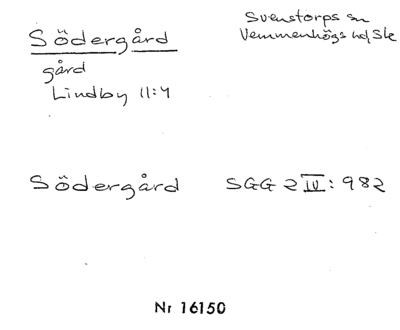 Södergård
Svenstorps sn
Vemmenhögs hd/Sk
gård
Lindby 11:4
Södergård SGG 2 IV: 982
Nr 16150